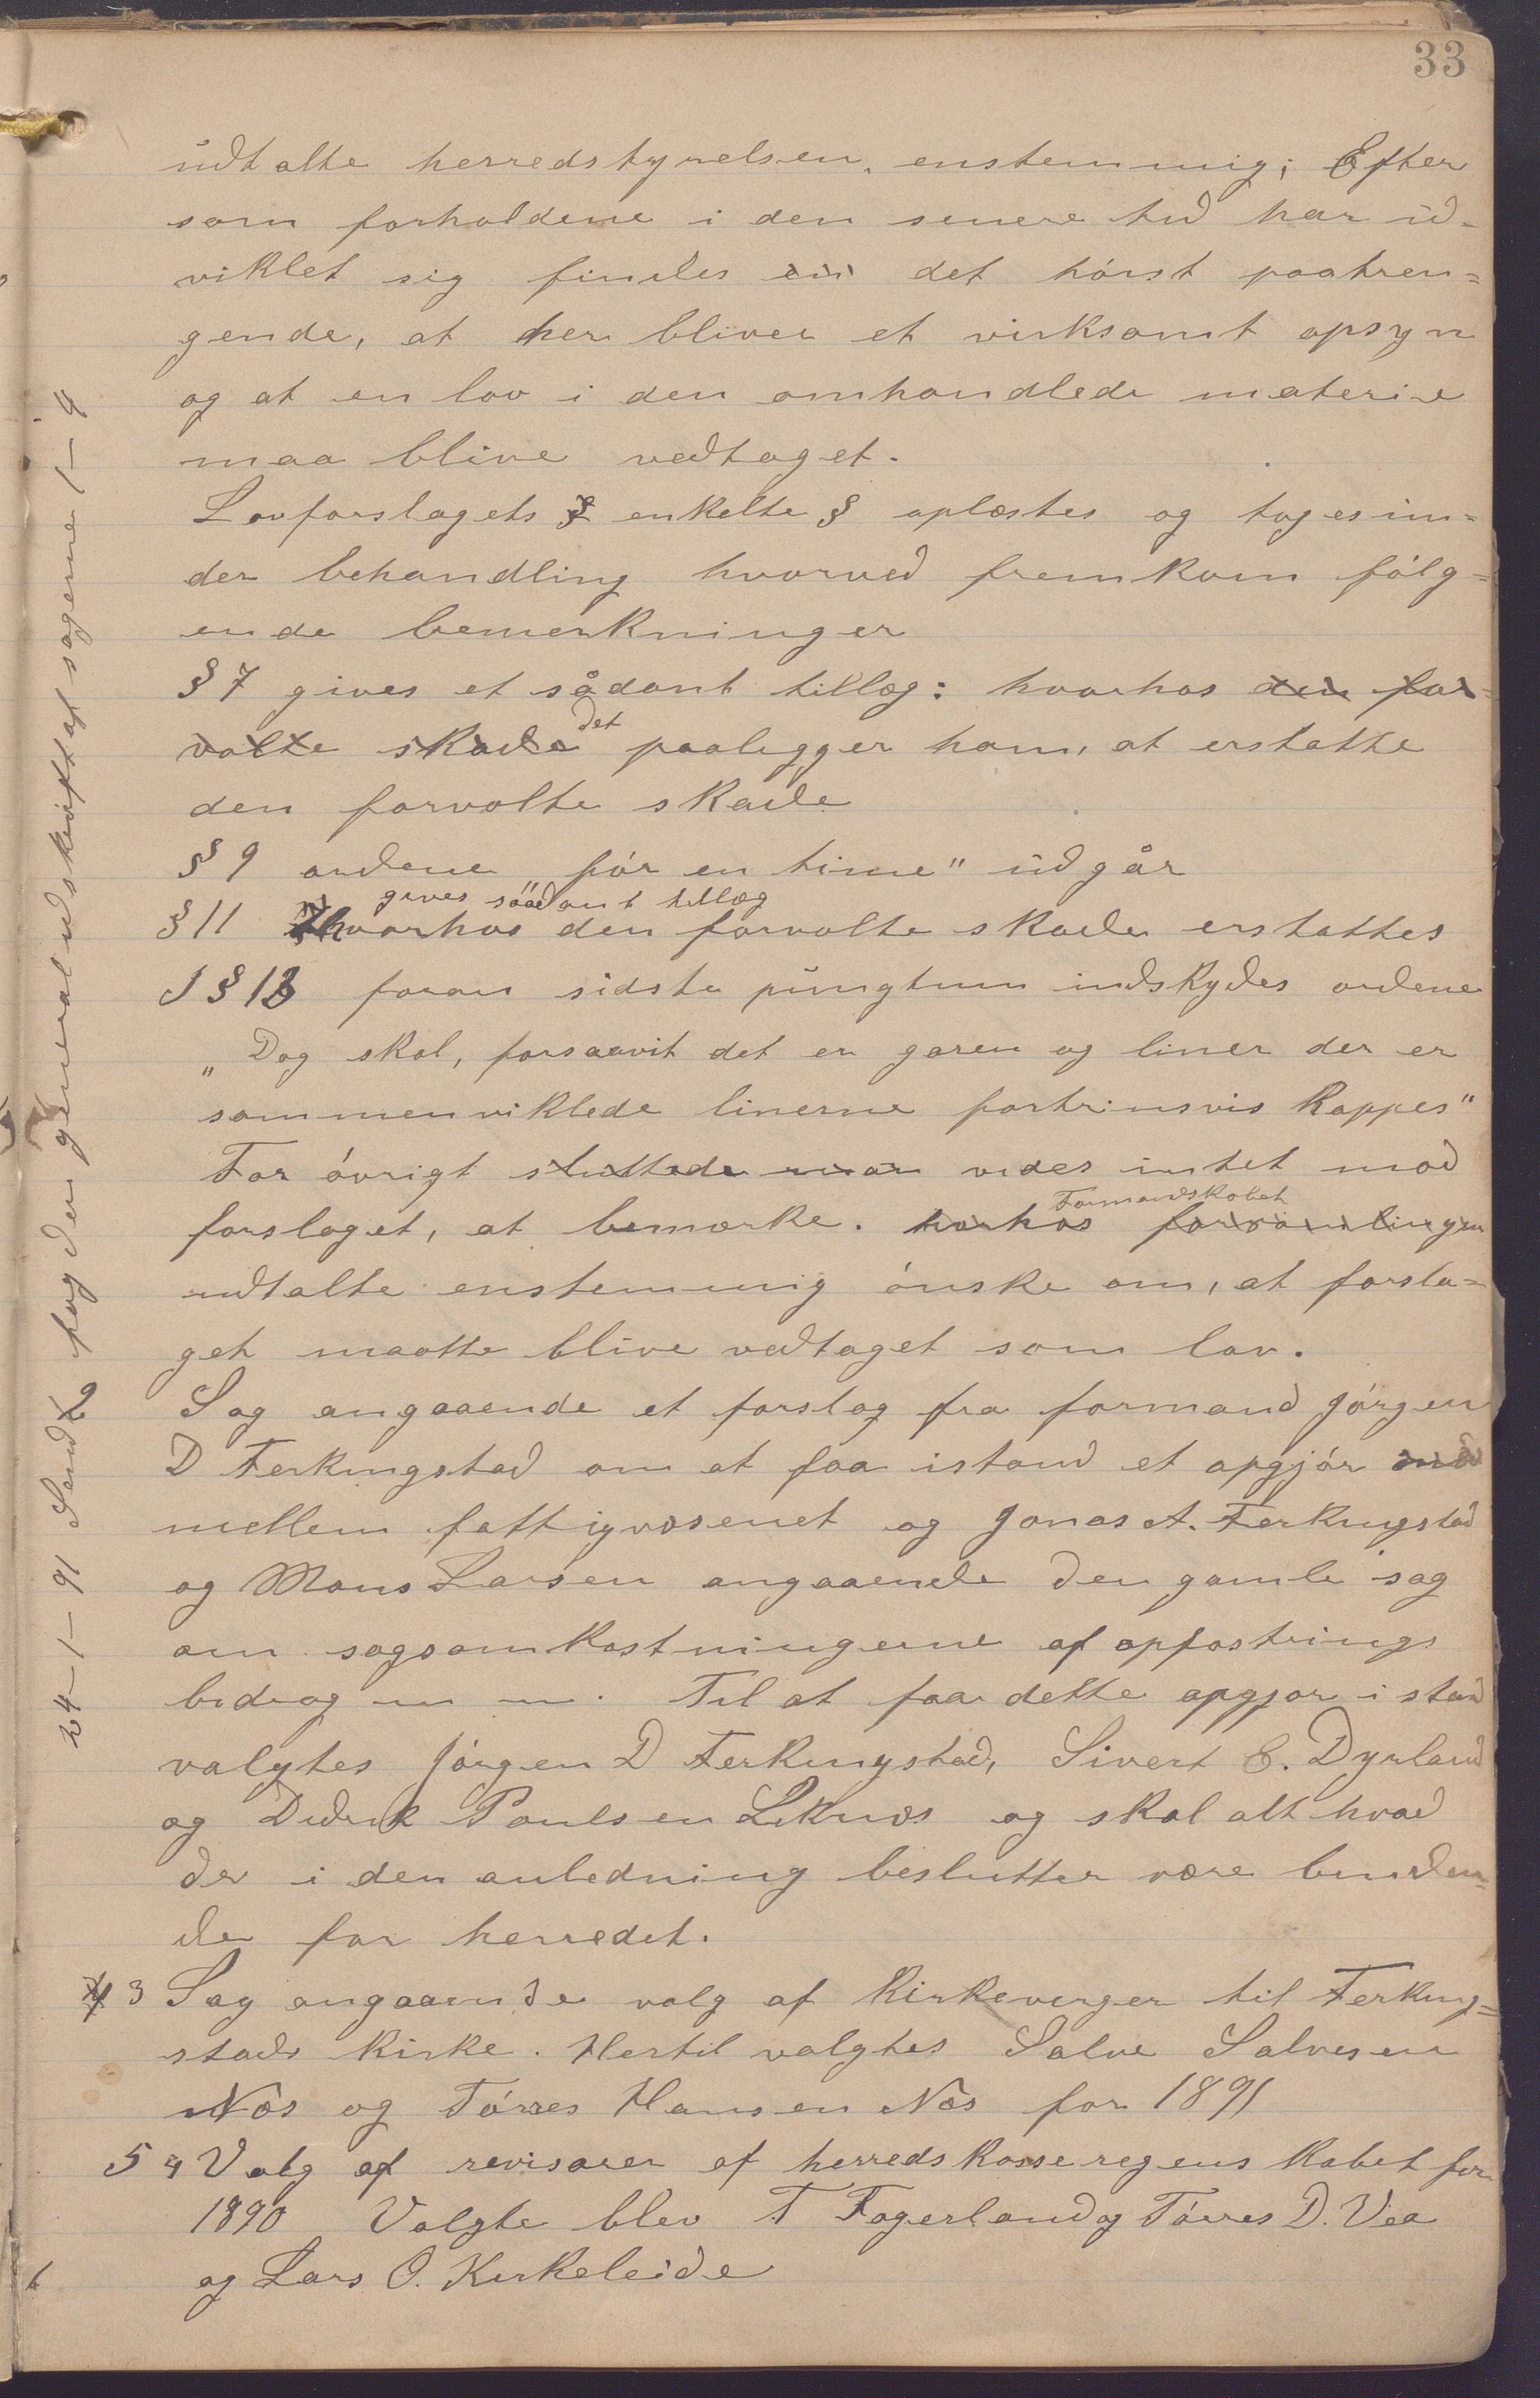 33
udtalte herredstyrelsen, enstemmig; Efter
som forholdene i den senere tid har ud-
viklet sig findes det hórst paatren=
gende, at her bliver et virksomt opsyn
og at en lov i den omhandlede materie
maa blive vedtaget.
Lovforslagets § enkelte § oplæstes og toges un=
der behandling hvorved fremkom fólg=
ende bemerkninger
§ 7 gives et sådant tillæg: hvorhos den for-
det
volte skade paalegger ham, at erstatte
den forvolte skade
§ 9 ordene „fór en time" udgår
gives såadant tillæg
§ 11 hvorhos den forvolte skade erstattes
I § 13 foran sidste pungtum indskydes ordene
„Dog skal, forsaavit det er garen og liner der er
sammenviklede linerne fortrinsvis kappes"
For óvrigt sluttede man vides intet mod
Formandskabet
forslaget, at bemærke. horhos forsamlingen
udtalte enstemmig ónske om, at forsla=
get maatte blive vedtaget som lov.
2 Sag angaaende et forslag fra formand Jórgen
D Ferkingstad om at faa istand et opgjór
mellem fattigvæsenet og Jonas A. Ferkingstad
og Mons Larsen angaaende den gamle sag
om sagsomkostningerne af opfostrings
bidrag m m. Til at faa dette opgjor i stand
valgtes Jórgen D Ferkingstad, Sivert E. Dyrland
og Didrik Paulsen Liknæs og skal alt hvad
de i den anledning beslutter være binden=
de for herredet.
4 3 Sag angaaende valg af Kirkeverger til Ferking=
stads Kirke. Hertil valgtes Salve Salvesen
Næs og Tórres Hansen Næs for 1891
5 4 Valg af revisorer af herredskasseregenskabet for
1890 Valgte blev T Fagerland og Tórres D. Vea
og Lars O. Kirkeleide
24–1–91 Sendt fogden generaludskrift af sagerne 1–4